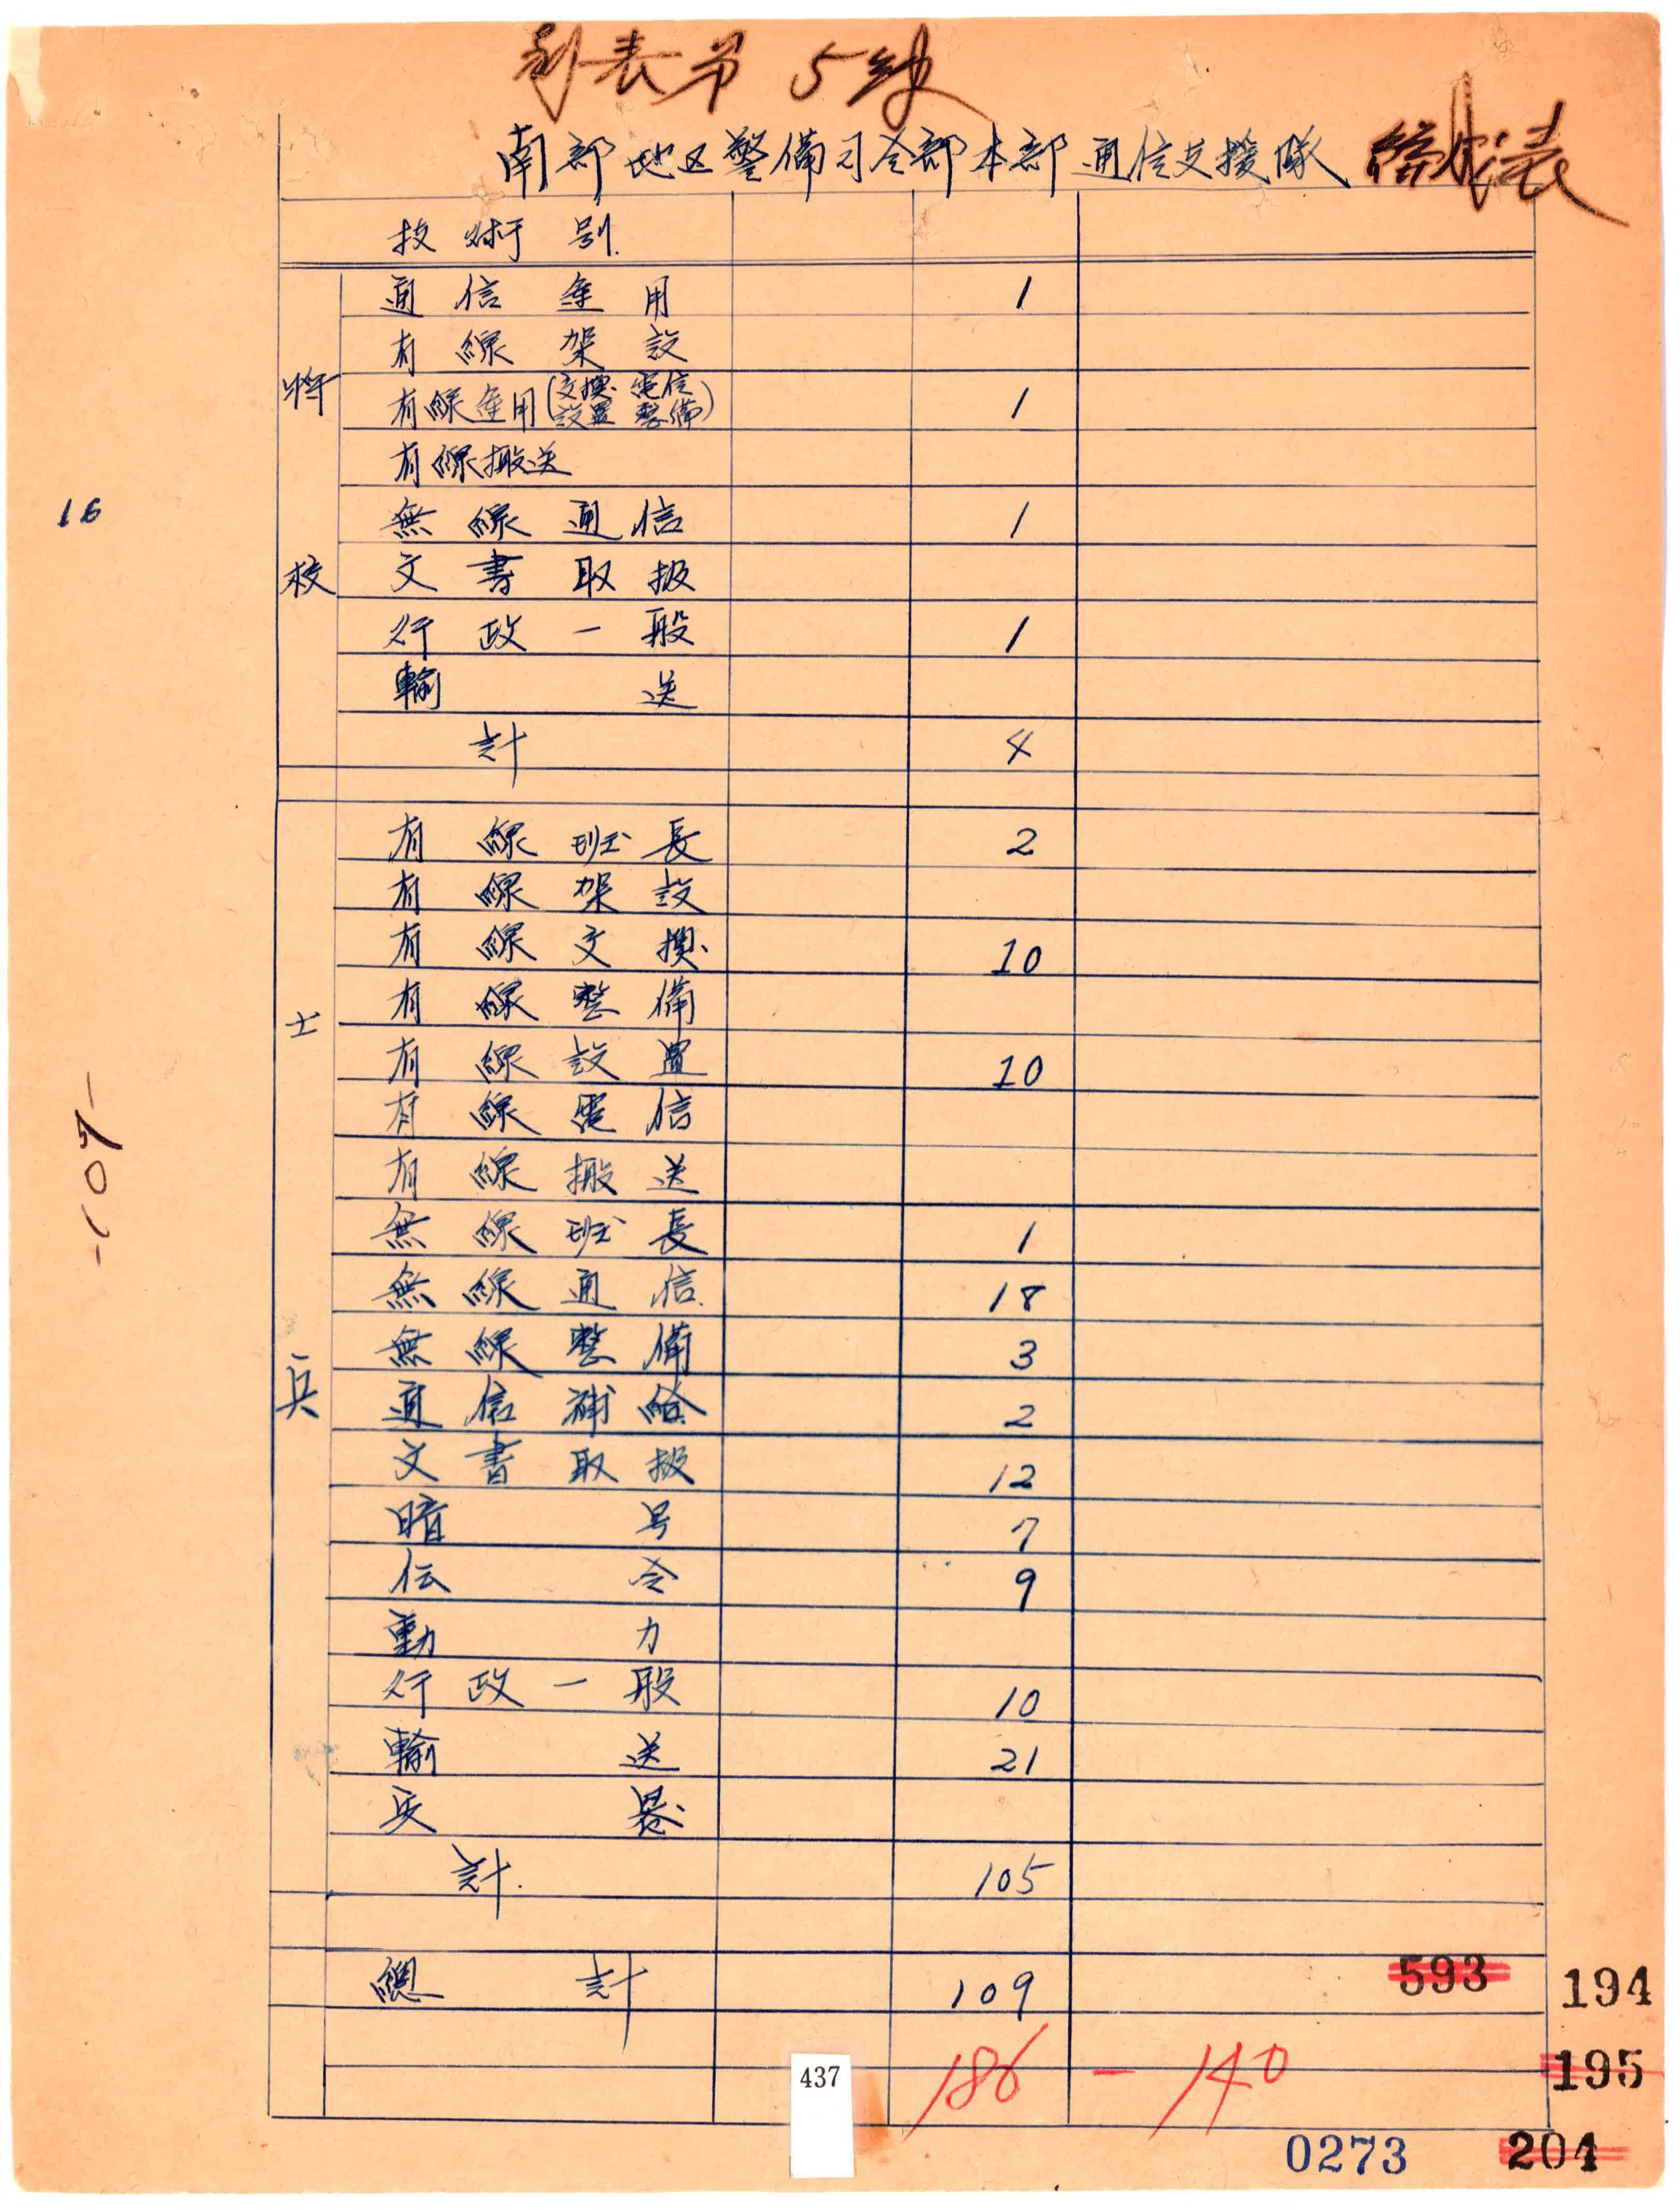 別表第5
南部地区警備司令部本部通信支援隊 編成表
技術別
将校
通信運用 1
有線架設
有線運用(交換電信設置整備) 1
有線搬送
16
無線通信 1
文書取扱
行政一般 1
輸送
計 4
士兵
有線班長 2
有線架設
有線交換 10
有線整備
有線設置 10
有線電信
有線搬送
無線班長 1
無線通信 18
無線整備 3
通信補給 2
文書取扱 12
暗号 7
伝令 9
動力
行政一般 10
輸送 21
兵器
計 105
総計 109
-107-
593 194
186 - 140
195
437
0273 204